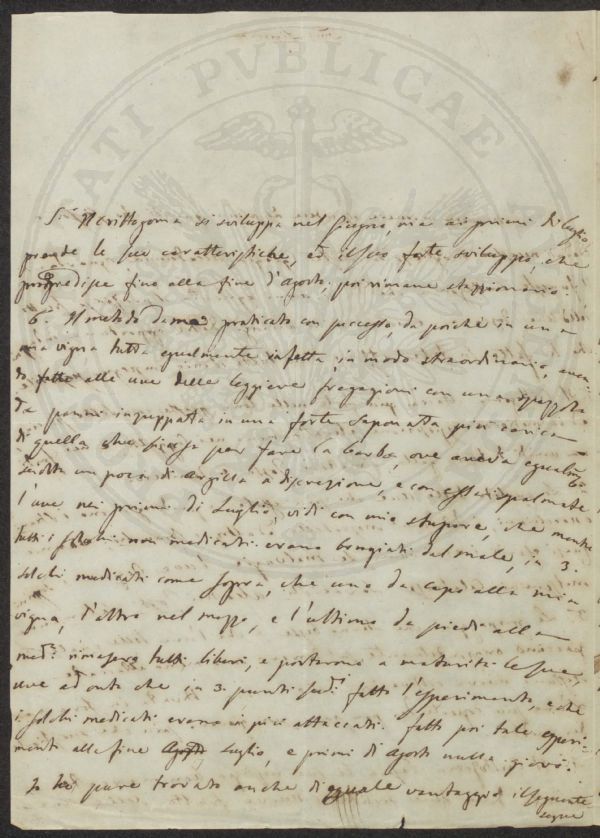 5.° Il crittogama si sviluppa nel Giugno, ma ai primi di luglio
prende le sue caratteristiche, ed il suo forte sviluppo, che
progredisce fino alla fine d'Agosto, poi rimane stazzionario.
6.° Il metodo da me praticato con successo, da poichè in una
mia vigna tutta egualmente infetta, in modo straordinario, aven-
do fatte alle uve delle leggiere fregagioni con una spazzola
da panni inzuppata in una forte saponata più carica
di quella che si usa per fare la barba, ove aveva egualm.te
sciolta un poca di argilla a discrezione, e con essa spalmate
l'uve nei primi di Luglio, vidi con mio stupore, che mentre
tutti i solchi non medicati erano bruciati dal male, in 3.
solchi medicati come sopra, che uno da capo alla mia
vigna, l'altro nel mezzo, e l'ultimo da piedi alla
med.a rimasero tutti liberi, e portarono a maturità le sue
uve ad onta che in 3. punti fatto l'esperimento, e che
i solchi medicati erano in più attaccati. Fatti poi tale esperi-
mento alla fine Luglio, e primi di Agosto nulla giovò.
Io ho pure trovato anche di eguale vantaggio il seguente
segue
PVBLICAE